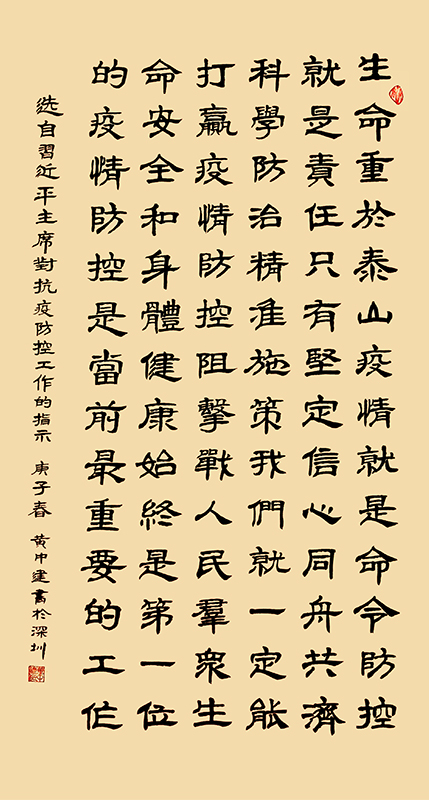 生命重於泰山疫情就是命令防控
就是責任只有堅定信心同舟共濟
科學防治精准施策我們就一定能
打贏疫情防控阻擊戰人民羣衆生
命安全和身體健康始終是第一位
的疫情防控是當前最重要的工作
选自習近平主席對抗疫防控工作的指示 庚子春 黄中建書於深圳